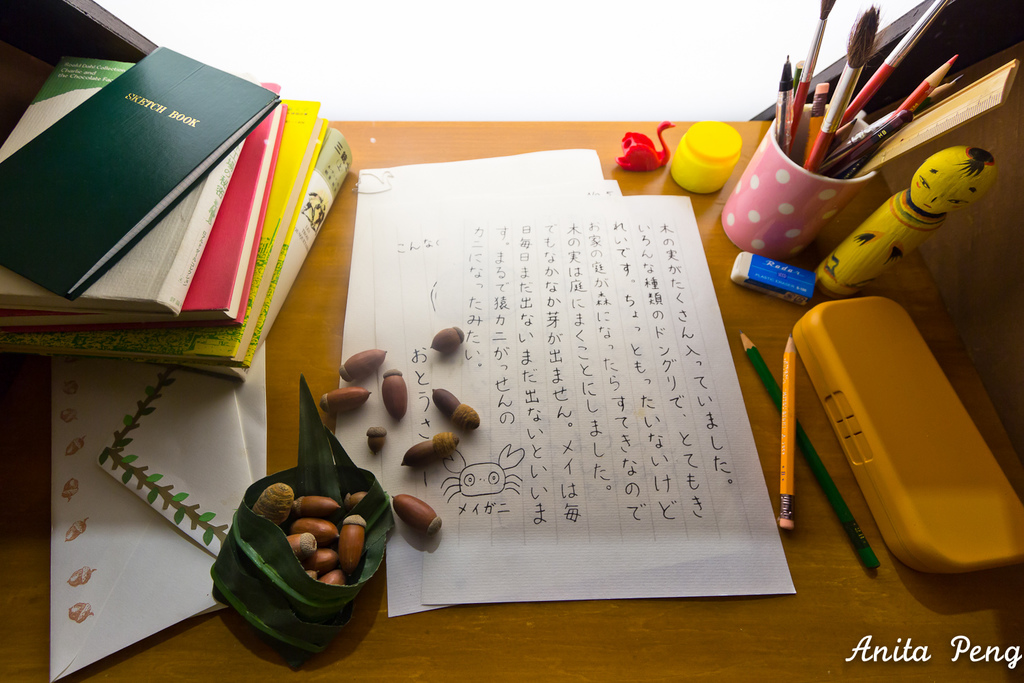 Roald Dahl Collection
Charlie and the
Chocolate Fac
SKETCH BOOK
木の実がたくさん入っていました。
いろんな種類のドングリで、とてもき
れいです。ちょっともったいないけど
お家の庭が森になったらすてきなので
木の実は庭にまくことにしました。
でもなかなか芽が出ません。メイは毎
日毎日まだ出ないまだ出ないといいま
す。まるで猿カニがっせんの
カニになったみたい。
メイガニ
おとうさ
こんなく
HB
Anita Peng